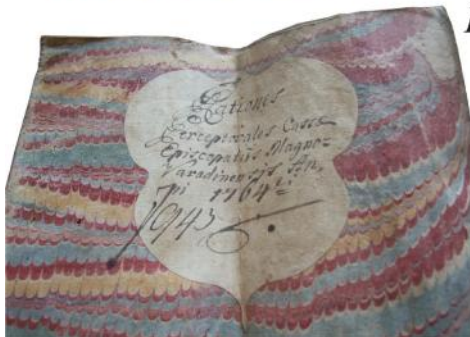 Rationes
Perceptorales Cassæ
Episcopatus Magno=
Varadinensis An,
ni 1764ti
1943